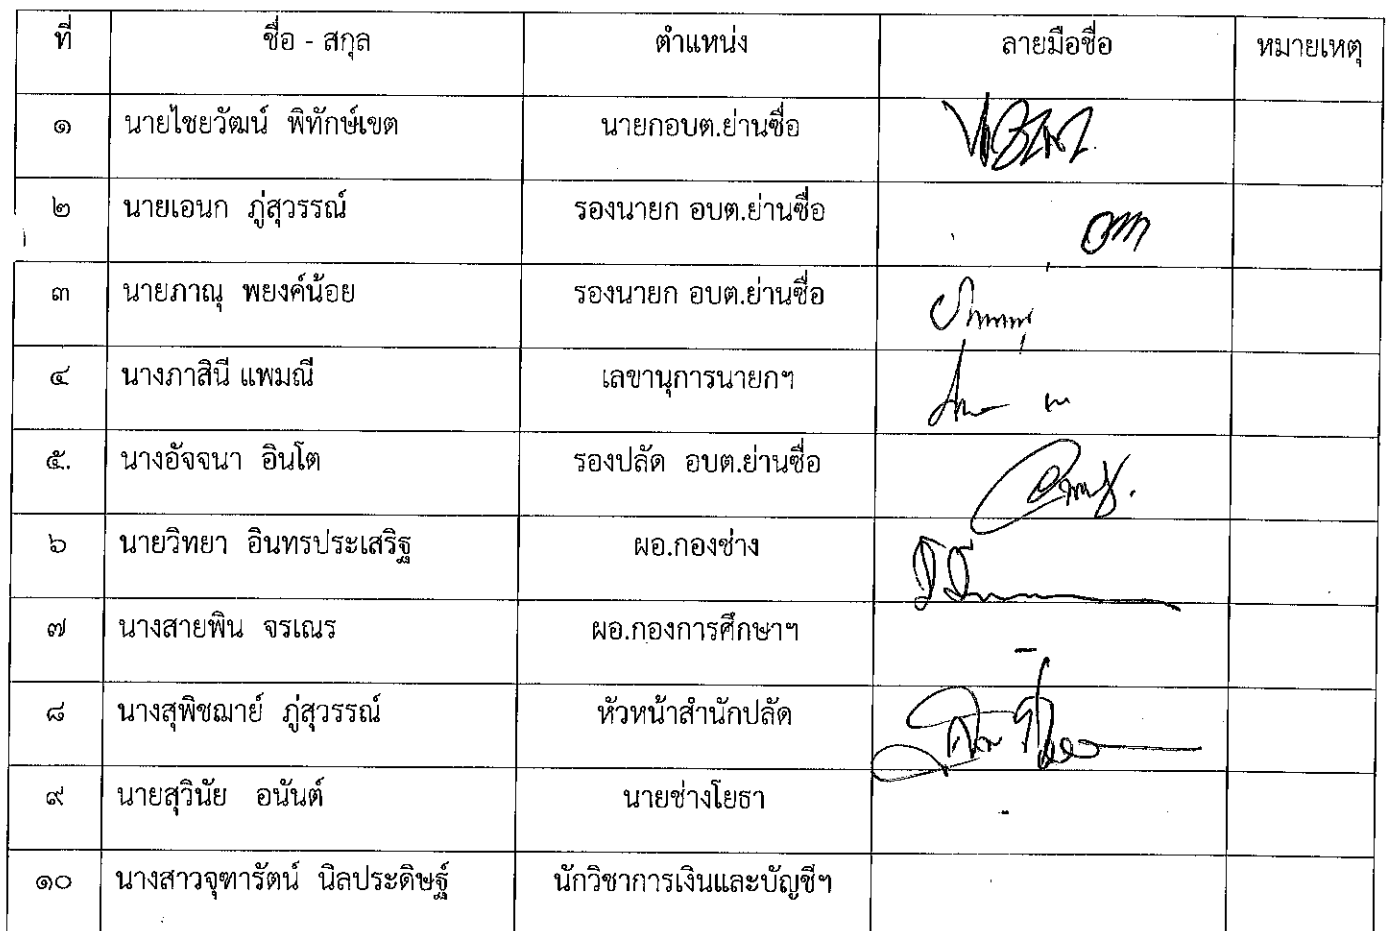 ที่ ชื่อ - สกุล ตำแหน่ง ลายมือชื่อ หมายเหตุ
๑ นายไชยวัฒน์ พิทักษ์เขต นายกอบต.ย่านซื่อ
๒ นายเอนก ภู่สุวรรณ์ รองนายก อบต.ย่านซื่อ
๓ นายภาณุ พยงค์น้อย รองนายก อบต.ย่านซื่อ
๔ นางภาสินี แพมณี เลขานุการนายกฯ
๕. นางอัจจนา อินโต รองปลัด อบต.ย่านซื่อ
๖ นายวิทยา อินทรประเสริฐ ผอ.กองช่าง
๗ นางสายพิน จรเณร ผอ.กองการศึกษาฯ -
๘ นางสุพิชฌาย์ ภู่สุวรรณ์ หัวหน้าสำนักปลัด
๙ นายสุวินัย อนันต์ นายช่างโยธา -
๑๐ นางสาวจุฑารัตน์ นิลประดิษฐ์ นักวิชาการเงินและบัญชีฯ